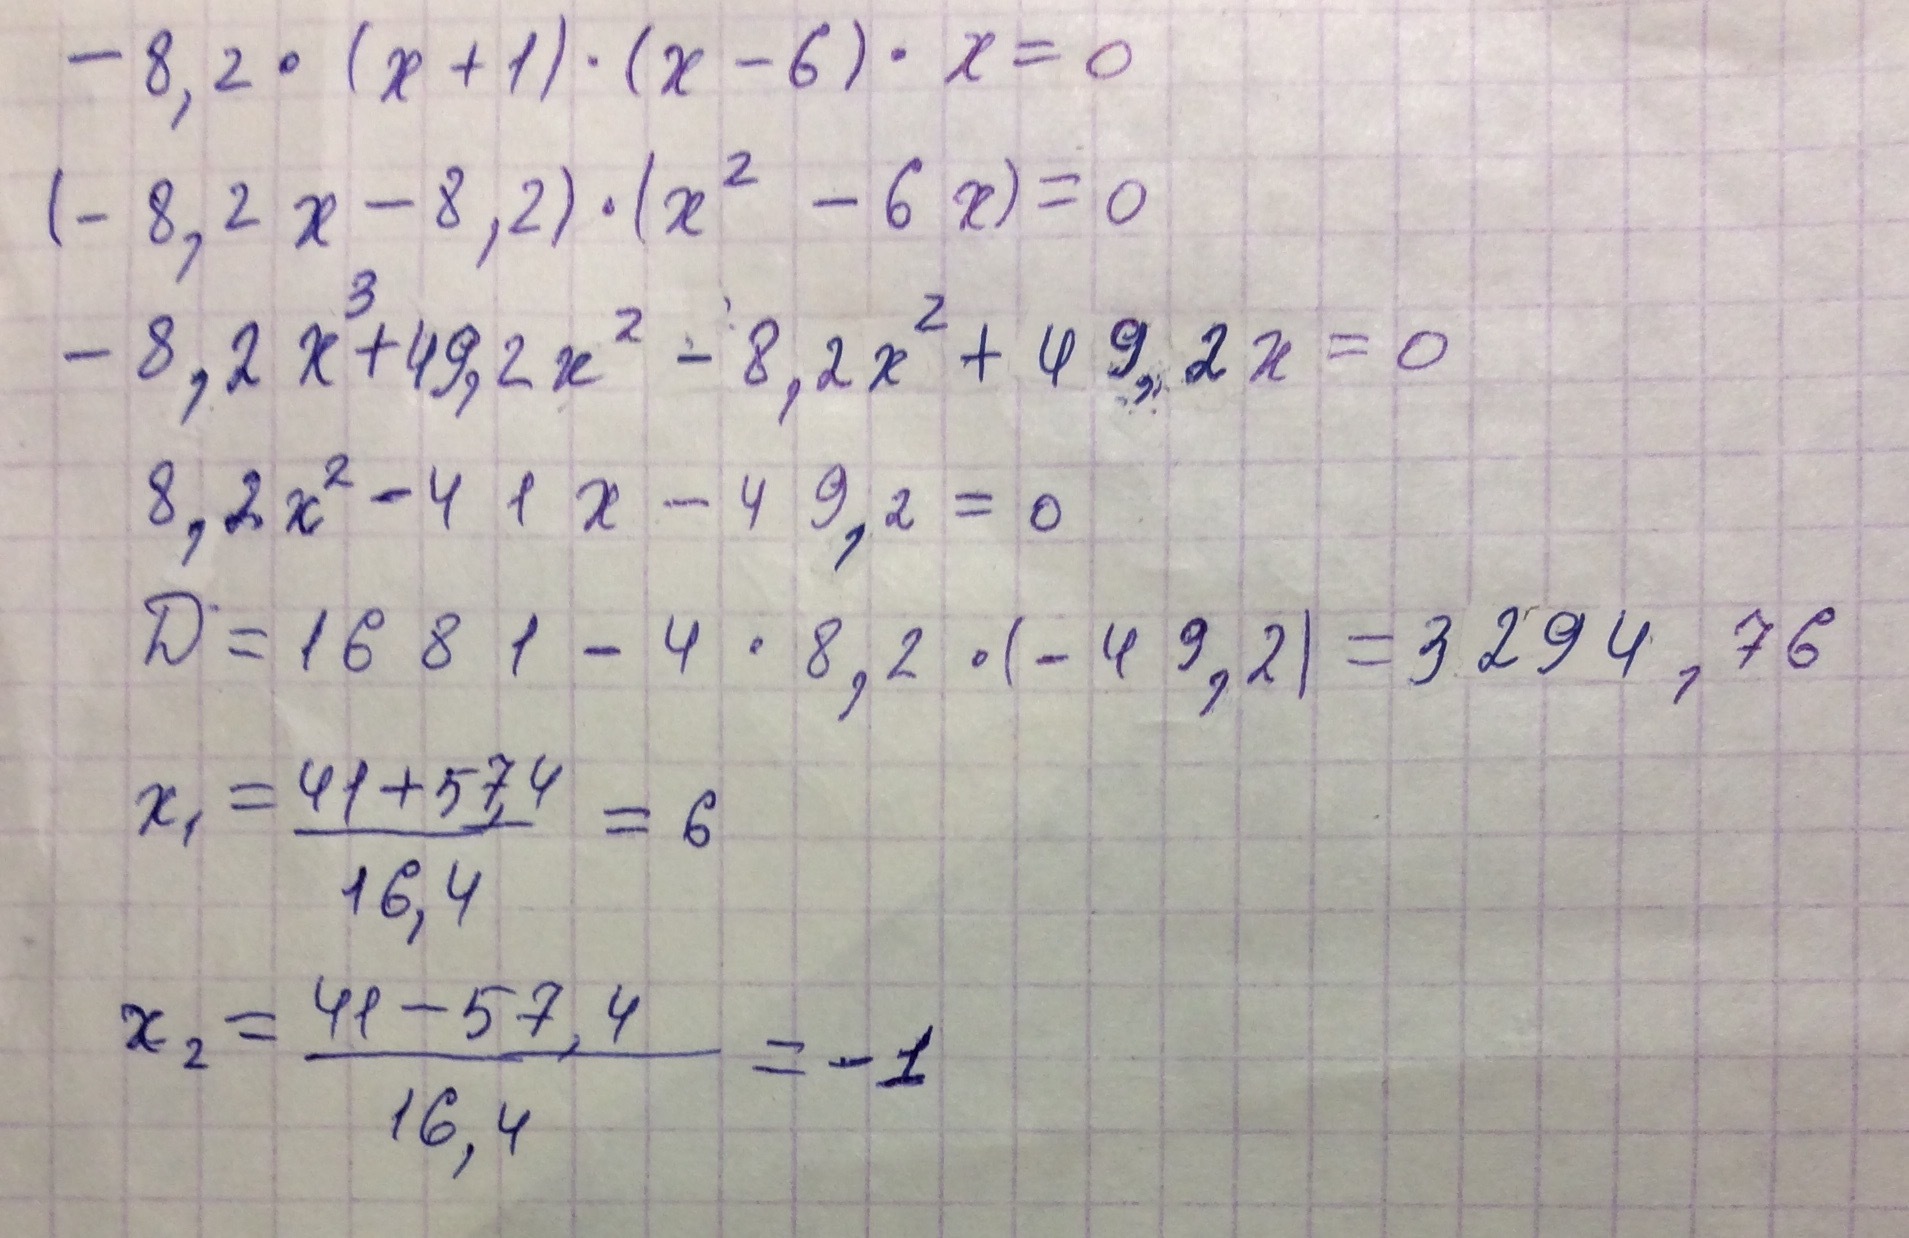 -8,2·(x+1)·(x-6)·x=0
(-8,2x-8,2)·(x²-6x)=0
-8,2x³+49,2x²-8,2x²+49,2x=0
8,2x²-41x-49,2=0
D=1681-4·8,2·(-49,2)=3294,76
x₁=(41+57,4)/16,4=6
x₂=(41-57,4)/16,4=-1